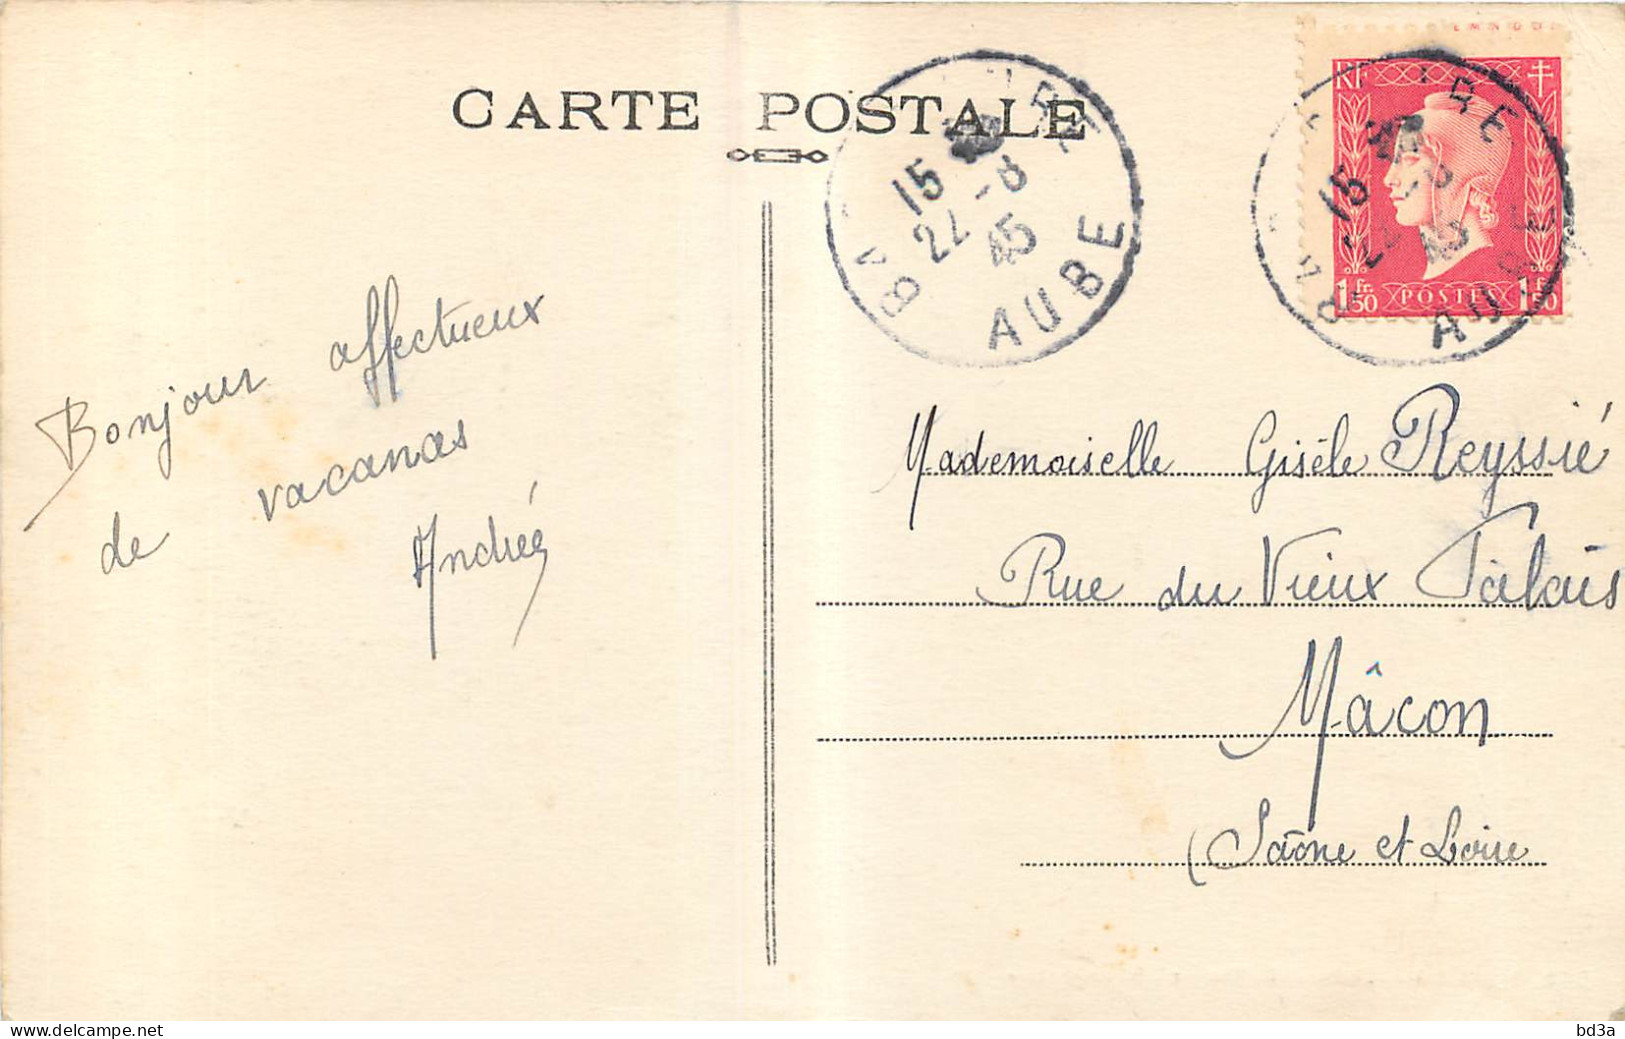 CARTE POSTALE
15
22 -8
45
AUBE
RF
15
22 -8
45
AUBE
1 Fr. 50 POSTES 1 F. 50
Bonjour affectueux
de vacances
Andrée
Mademoiselle Gisèle Reyssié
Rue du Vieux Palais
Mâcon
(Saône et Loire
www.delcampe.net
bd3a